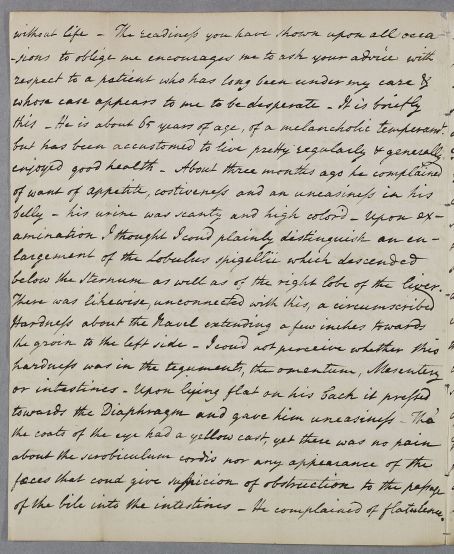 without life - The readiness you have shown upon all occa
-sions to oblige me encourages me to ask your advice with
respect to a patient who has long been under my care &
whose case appears to me to be desperate - It is briefly
this - He is about 65 years of age, of a melancholic temperamt.
but has been accustomed to live pretty regularly & generally
enjoyed good health - About three months ago he complained
of want of appetite, costiveness and an uneasiness in his
belly - his urine was scanty and high colord - Upon ex-
amination I thought I coud plainly distinguish an en-
largement of the Lobulus spigellii which descended
below the Sternum as well as of the right lobe of the liver.
There was likewise, unconnected with this, a circumscribed
Hardness about the Navel extending a few inches towards
the groin to the left side - I coud not perceive whether this
hardness was in the teguments, the omentum, Mesentery
or intestines - Upon lying flat on his back it pressed
towards the Diaphragm and gave him uneasiness - Tho'
the coats of the eye had a yellow cast, yet there was no pain
about the scrobiculum cordis nor any appearance of the
fæces that coud give suspicion of obstruction to the passage
of the bile into the intestines - He complained of flatulence,